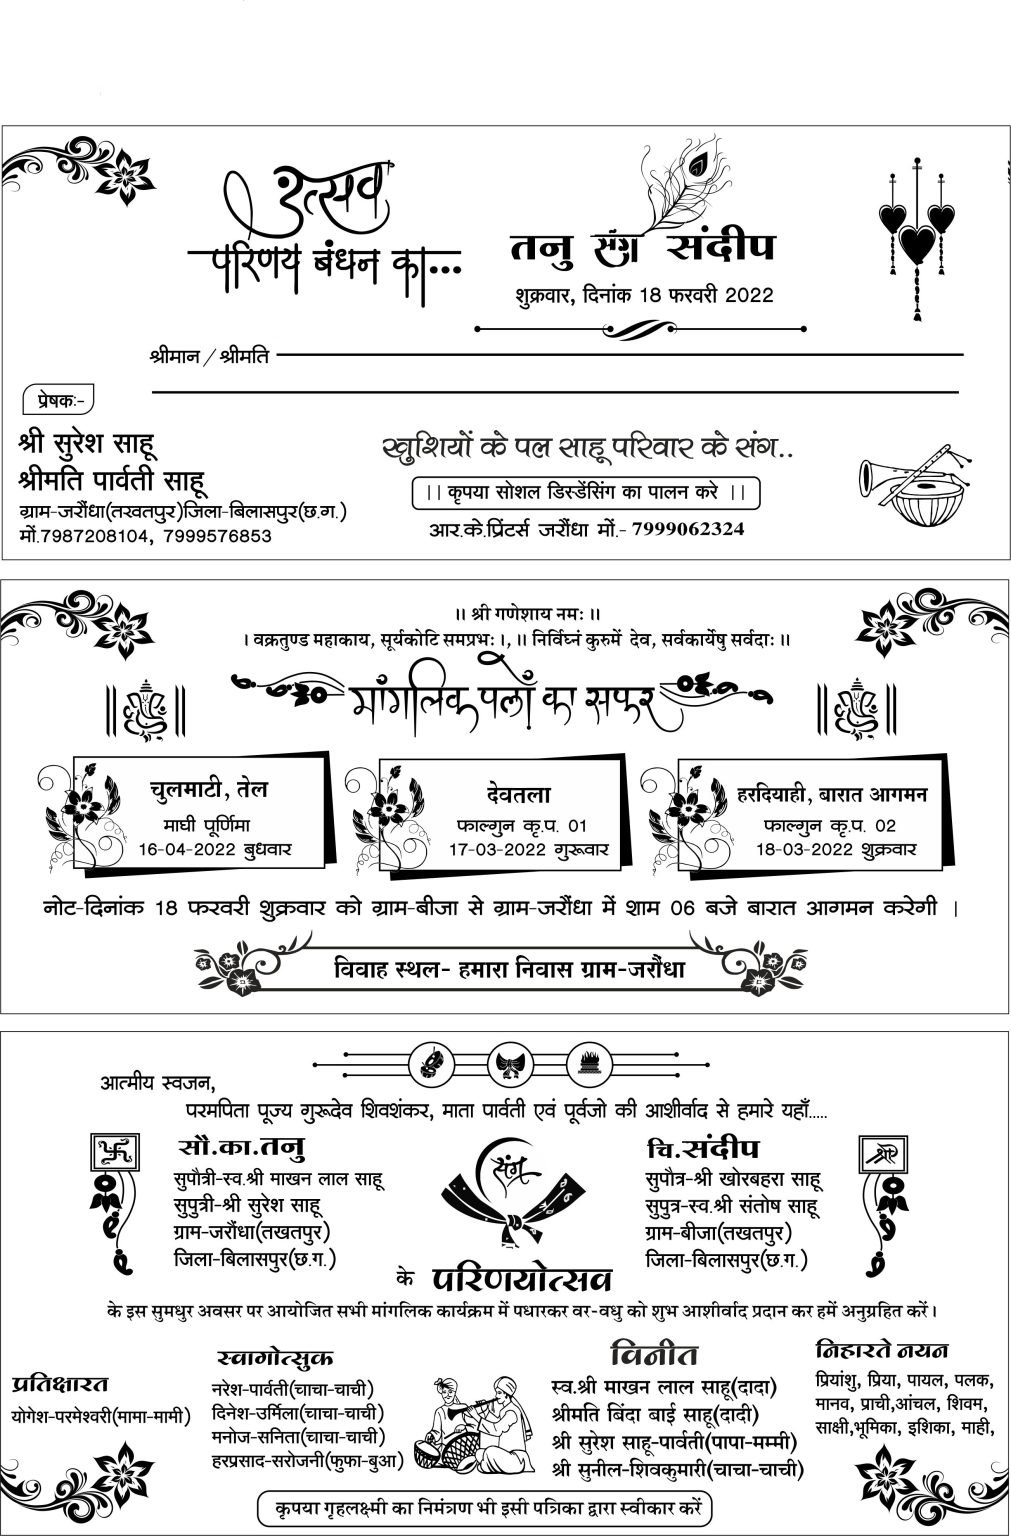 उत्सव
परिणय बंधन का...
तनु संग संदीप
शुक्रवार, दिनांक 18 फरवरी 2022
श्रीमान / श्रीमति
प्रेषक:-
श्री सुरेश साहू
श्रीमति पार्वती साहू
ग्राम-जरौंधा(तखतपुर)जिला-बिलासपुर(छ.ग.)
मों.7987208104, 7999576853
खुशियों के पल साहू परिवार के संग..
।। कृपया सोशल डिस्डेंसिंग का पालन करे ।।
आर.के.प्रिंटर्स जरौंधा मों.- 7999062324
॥ श्री गणेशाय नमः ॥
। वक्रतुण्ड महाकाय, सूर्यकोटि समप्रभः ।, ॥ निर्विघ्नं कुरुमें देव, सर्वकार्येषु सर्वदाः ॥
मांगलिक पलों का सफर
चुलमाटी, तेल
माघी पूर्णिमा
16-04-2022 बुधवार
देवतला
फाल्गुन कृ.प. 01
17-03-2022 गुरूवार
हरदियाही, बारात आगमन
फाल्गुन कृ.प. 02
18-03-2022 शुक्रवार
नोट-दिनांक 18 फरवरी शुक्रवार को ग्राम-बीजा से ग्राम-जरौंधा में शाम 06 बजे बारात आगमन करेगी ।
विवाह स्थल- हमारा निवास ग्राम-जरौंधा
आत्मीय स्वजन,
परमपिता पूज्य गुरूदेव शिवशंकर, माता पार्वती एवं पूर्वजो की आशीर्वाद से हमारे यहाँ.....
सौ.का.तनु
सुपौत्री-स्व.श्री माखन लाल साहू
सुपुत्री-श्री सुरेश साहू
ग्राम-जरौंधा(तखतपुर)
जिला-बिलासपुर(छ.ग.)
संग
चि.संदीप
सुपौत्र-श्री खोरबहरा साहू
सुपुत्र-स्व.श्री संतोष साहू
ग्राम-बीजा(तखतपुर)
जिला-बिलासपुर(छ.ग.)
श्री
के परिणयोत्सव
के इस सुमधुर अवसर पर आयोजित सभी मांगलिक कार्यक्रम में पधारकर वर-वधु को शुभ आशीर्वाद प्रदान कर हमें अनुग्रहित करें।
प्रतिक्षारत
योगेश-परमेश्वरी(मामा-मामी)
स्वागोत्सुक
नरेश-पार्वती(चाचा-चाची)
दिनेश-उर्मिला(चाचा-चाची)
मनोज-सनिता(चाचा-चाची)
हरप्रसाद-सरोजनी(फुफा-बुआ)
विनीत
स्व.श्री माखन लाल साहू(दादा)
श्रीमति बिंदा बाई साहू(दादी)
श्री सुरेश साहू-पार्वती(पापा-मम्मी)
श्री सुनील-शिवकुमारी(चाचा-चाची)
निहारते नयन
प्रियांशु, प्रिया, पायल, पलक,
मानव, प्राची,आंचल, शिवम,
साक्षी,भूमिका, इशिका, माही,
कृपया गृहलक्ष्मी का निमंत्रण भी इसी पत्रिका द्वारा स्वीकार करें